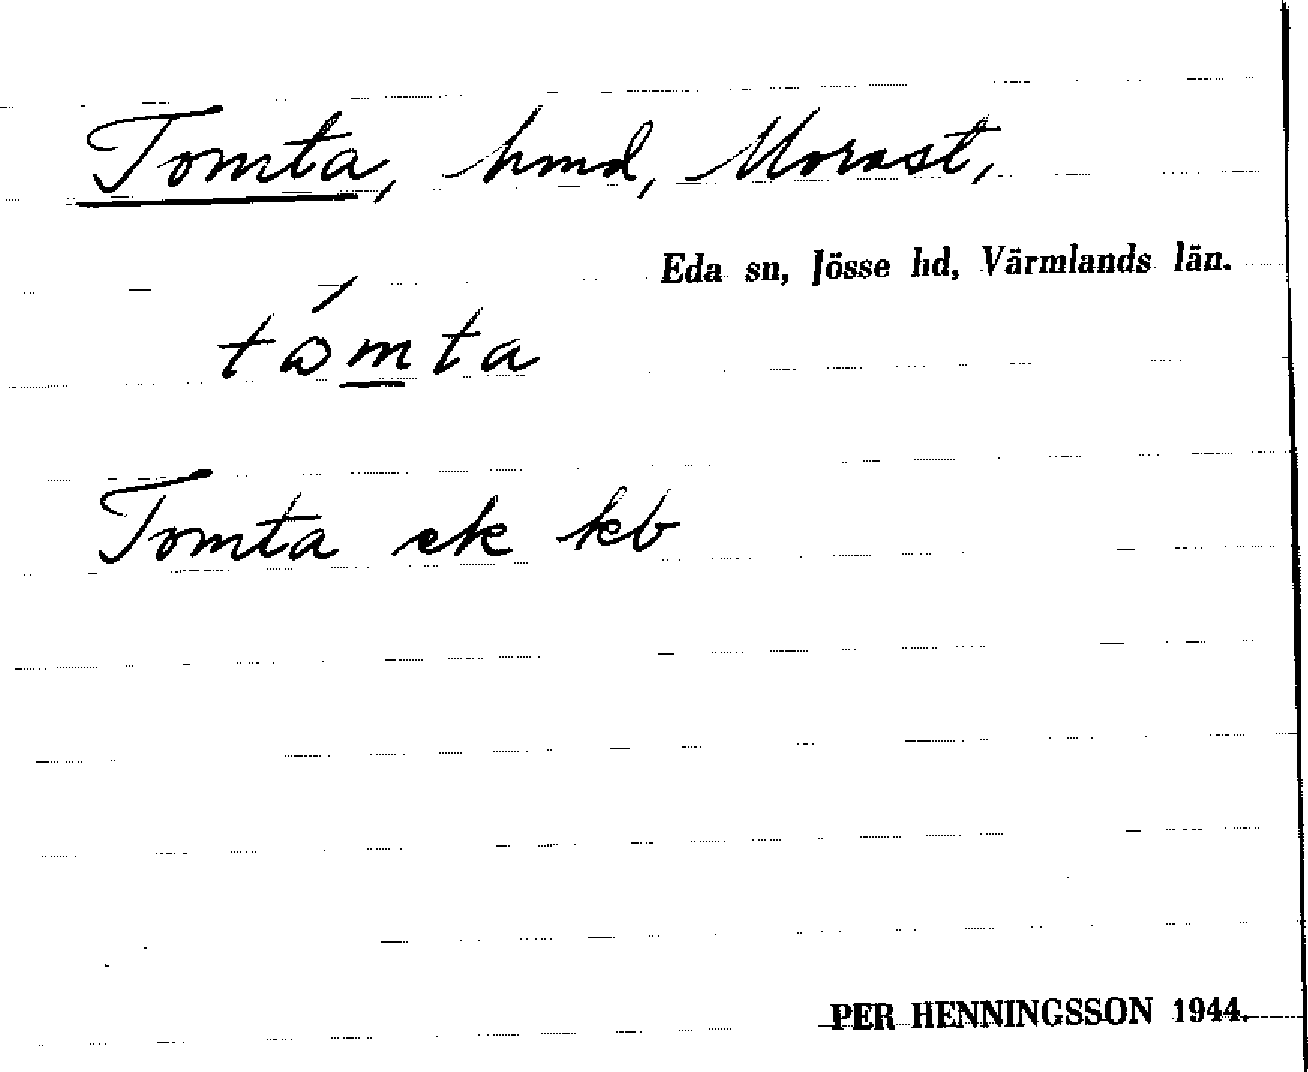 Tomta, hmd, Morast,
Eda sn, Jösse hd, Värmlands län.
tómta
Tomta ek kb
PER HENNINGSSON 1944.